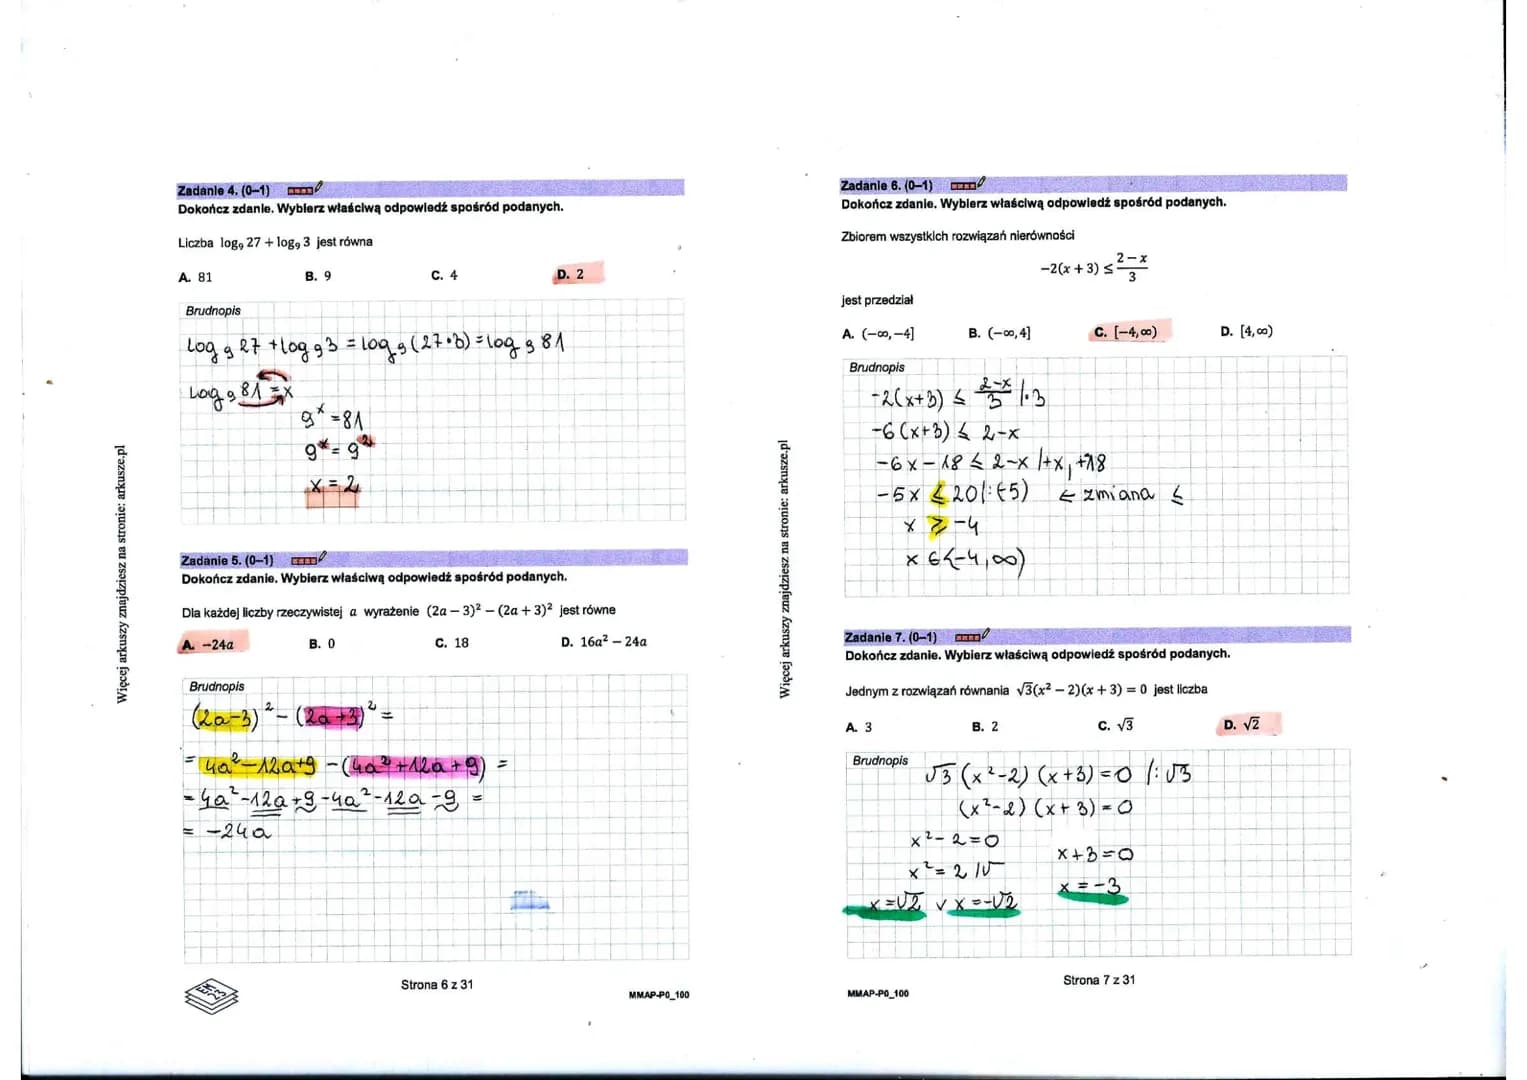 Zadanie 4. (0–1)
Dokończ zdanie. Wybierz właściwą odpowiedź spośród podanych.
Liczba log₉ 27 + log₉ 3 jest równa
A. 81 B. 9 C. 4 D. 2
Brudnopis
log₉ 27 + log₉ 3 = log₉ (27·3) = log₉ 81
log₉ 81 = x
9ˣ = 81
9ˣ = 9²
x = 2
Zadanie 5. (0–1)
Dokończ zdanie. Wybierz właściwą odpowiedź spośród podanych.
Dla każdej liczby rzeczywistej a wyrażenie (2a − 3)² − (2a + 3)² jest równe
A. −24a B. 0 C. 18 D. 16a² − 24a
Brudnopis
(2a-3)² - (2a+3)² =
= 4a²-12a+9 - (4a²+12a+9) =
= 4a²-12a+9-4a²-12a-9 =
= -24a
Strona 6 z 31
MMAP-P0_100
Więcej arkuszy znajdziesz na stronie: arkusze.pl
Zadanie 6. (0–1)
Dokończ zdanie. Wybierz właściwą odpowiedź spośród podanych.
Zbiorem wszystkich rozwiązań nierówności
−2(x + 3) ≤ (2 − x)/3
jest przedział
A. (−∞, −4] B. (−∞, 4] C. [−4, ∞) D. [4, ∞)
Brudnopis
-2(x+3) ≤ (2-x)/3 /·3
-6(x+3) ≤ 2-x
-6x-18 ≤ 2-x /+x, +18
-5x ≤ 20 /:(-5) ← zmiana ≤
x ≥ -4
x ∈ <-4, ∞)
Zadanie 7. (0–1)
Dokończ zdanie. Wybierz właściwą odpowiedź spośród podanych.
Jednym z rozwiązań równania √3(x² − 2)(x + 3) = 0 jest liczba
A. 3 B. 2 C. √3 D. √2
Brudnopis
√3 (x²-2) (x+3) = 0 /:√3
(x²-2) (x+3) = 0
x²-2=0
x+3=0
x²=2 /√
x=-3
x=√2 ∨ x=-√2
Strona 7 z 31
MMAP-P0_100
Więcej arkuszy znajdziesz na stronie: arkusze.pl